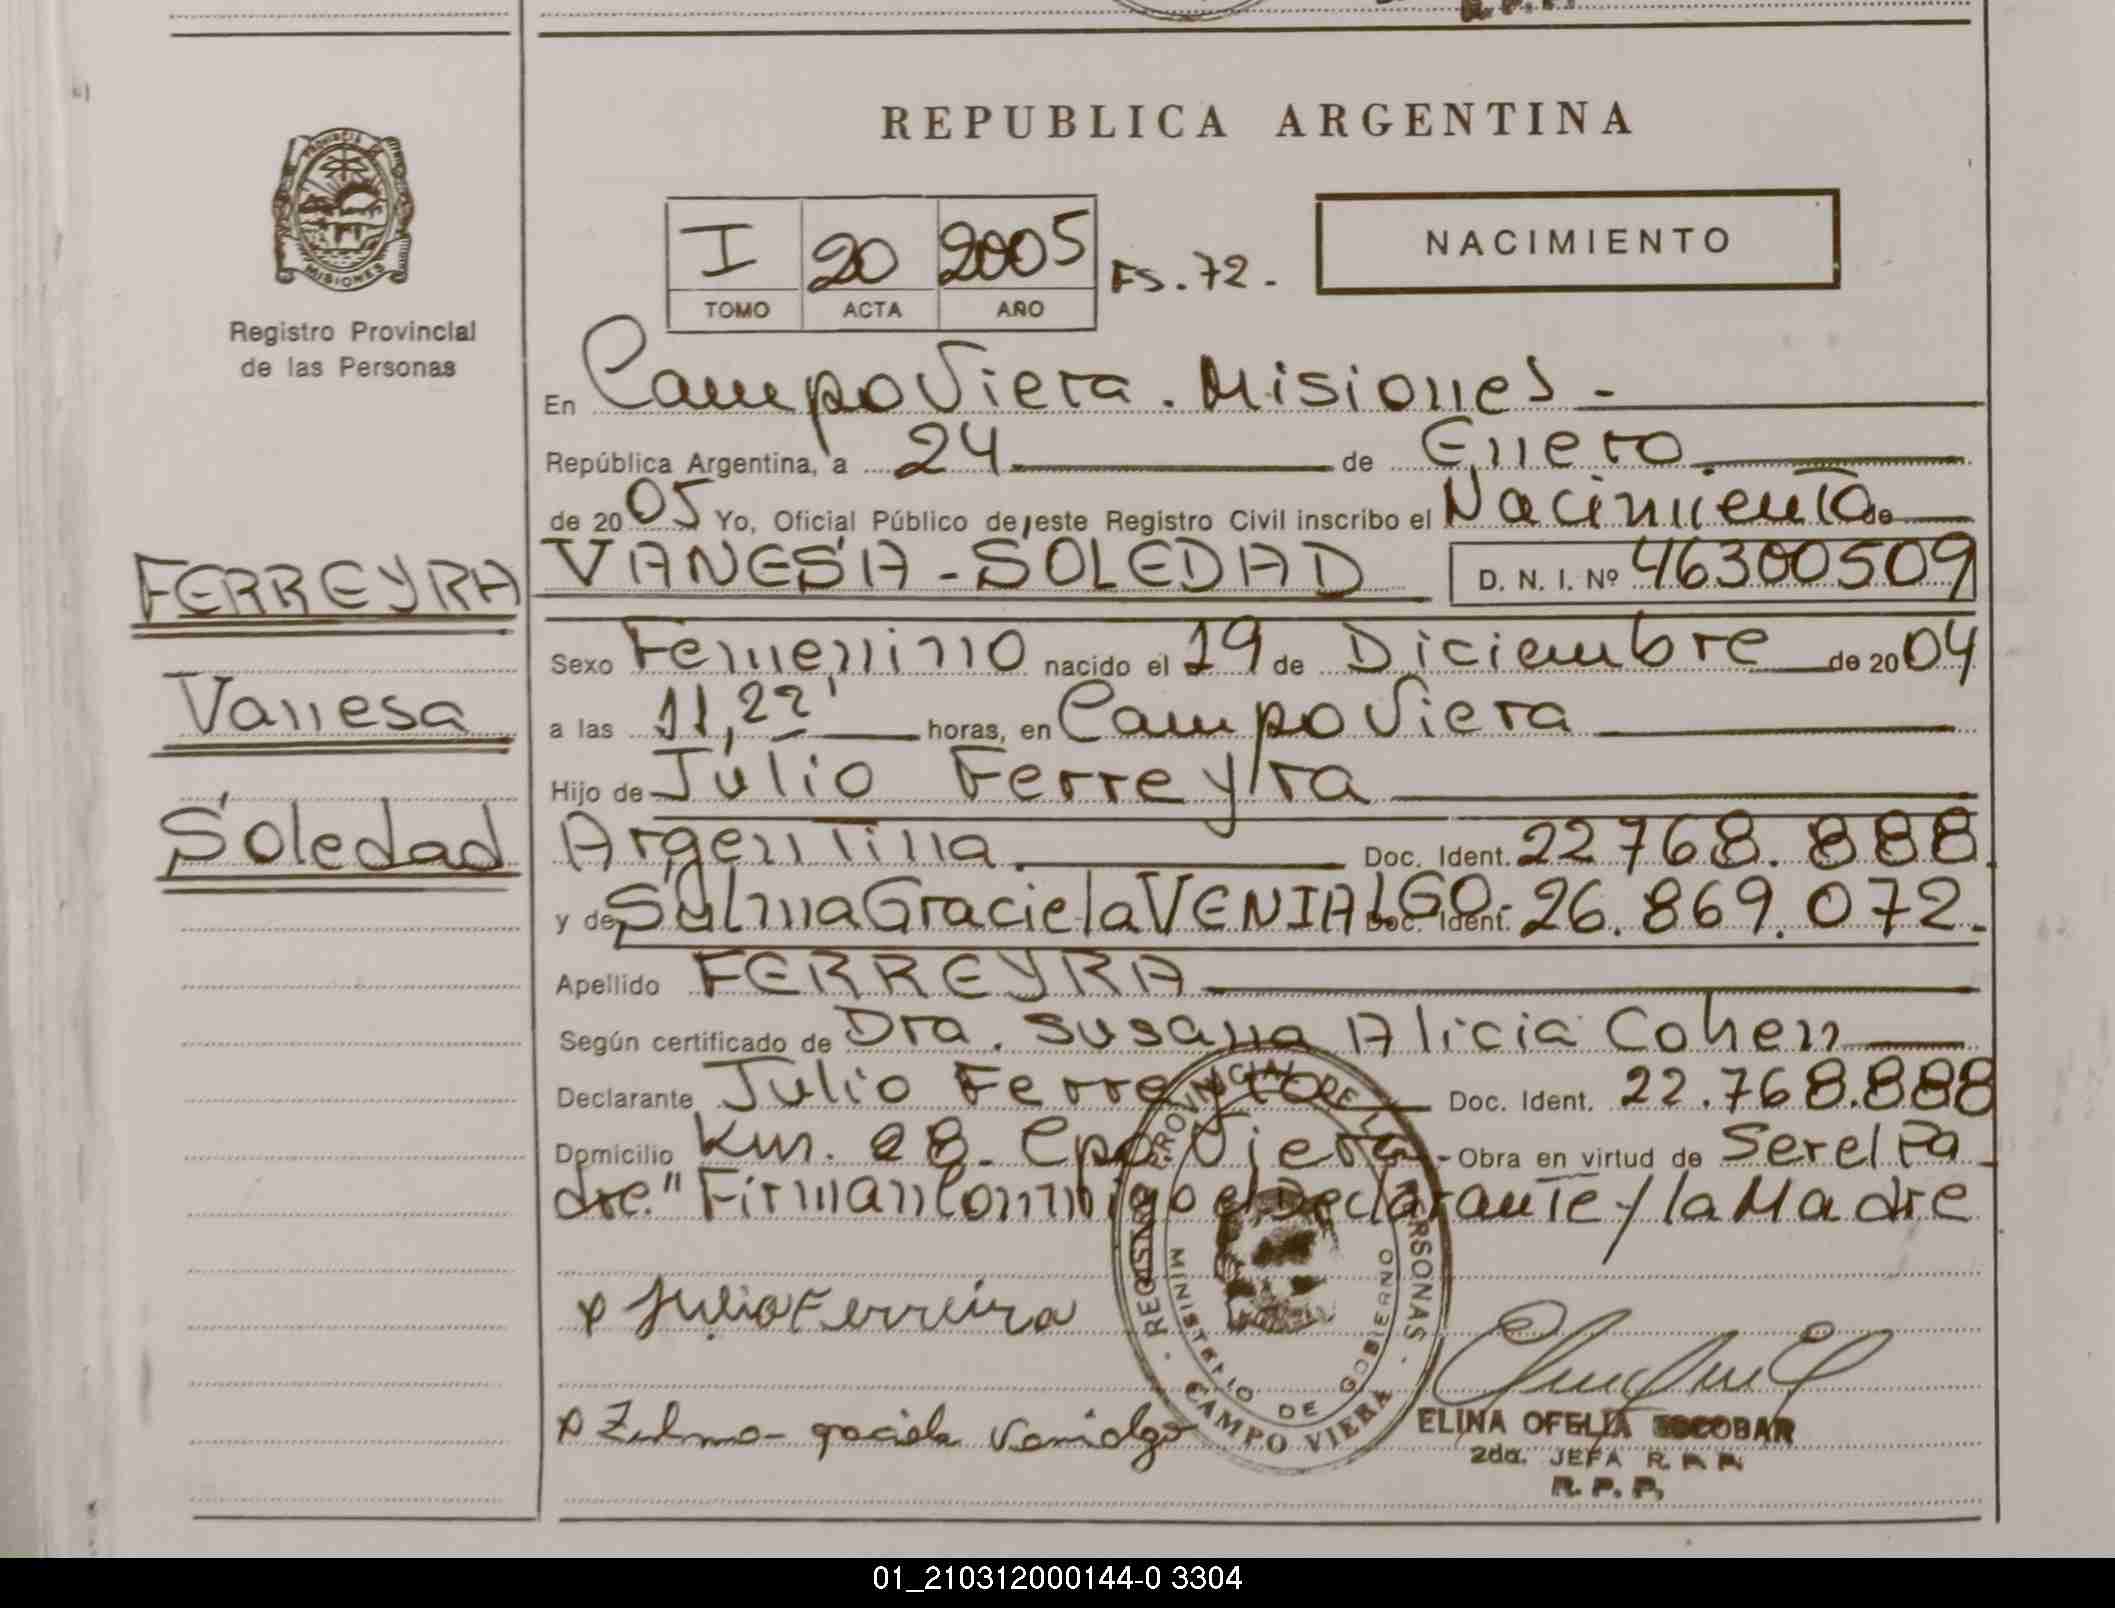 REPUBLICA ARGENTINA
PROVINCIA DE MISIONES
Registro Provincial
de las Personas
I 20 2005 FS. 72.-
TOMO ACTA AÑO
NACIMIENTO
En Campo Viera. Misiones -
República Argentina, a 24 de Enero
de 2005 Yo, Oficial Público de este Registro Civil inscribo el Nacimiento de
FERREYRA
Vanesa
Soledad
VANESA - SOLEDAD D. N. I. Nº 46300509
Sexo Femenino nacido el 19 de Diciembre de 2004
a las 11,22' horas, en Campo Viera
Hijo de Julio Ferreyra
Argentina. Doc. Ident. 22768.888.
y de Sulma Graciela VENIALGO- Doc. Ident. 26.869.072.-
Apellido FERREYRA
Según certificado de Dra. Susana Alicia Cohen
Declarante Julio Ferreyra Doc. Ident. 22.768.888
Domicilio Km. 28- Cpo Viera- Obra en virtud de Ser el Pa
dre." Firman Conmigo el Declarante y la Madre
Julio Ferreira
Zulma graciela Venialgo
REGISTRO PROVINCIAL DE LAS PERSONAS
MINISTERIO DE GOBIERNO
CAMPO VIERA
ELINA OFELIA ESCOBAR
2da. JEFA R.
R. P. P.
01_210312000144-0 3304